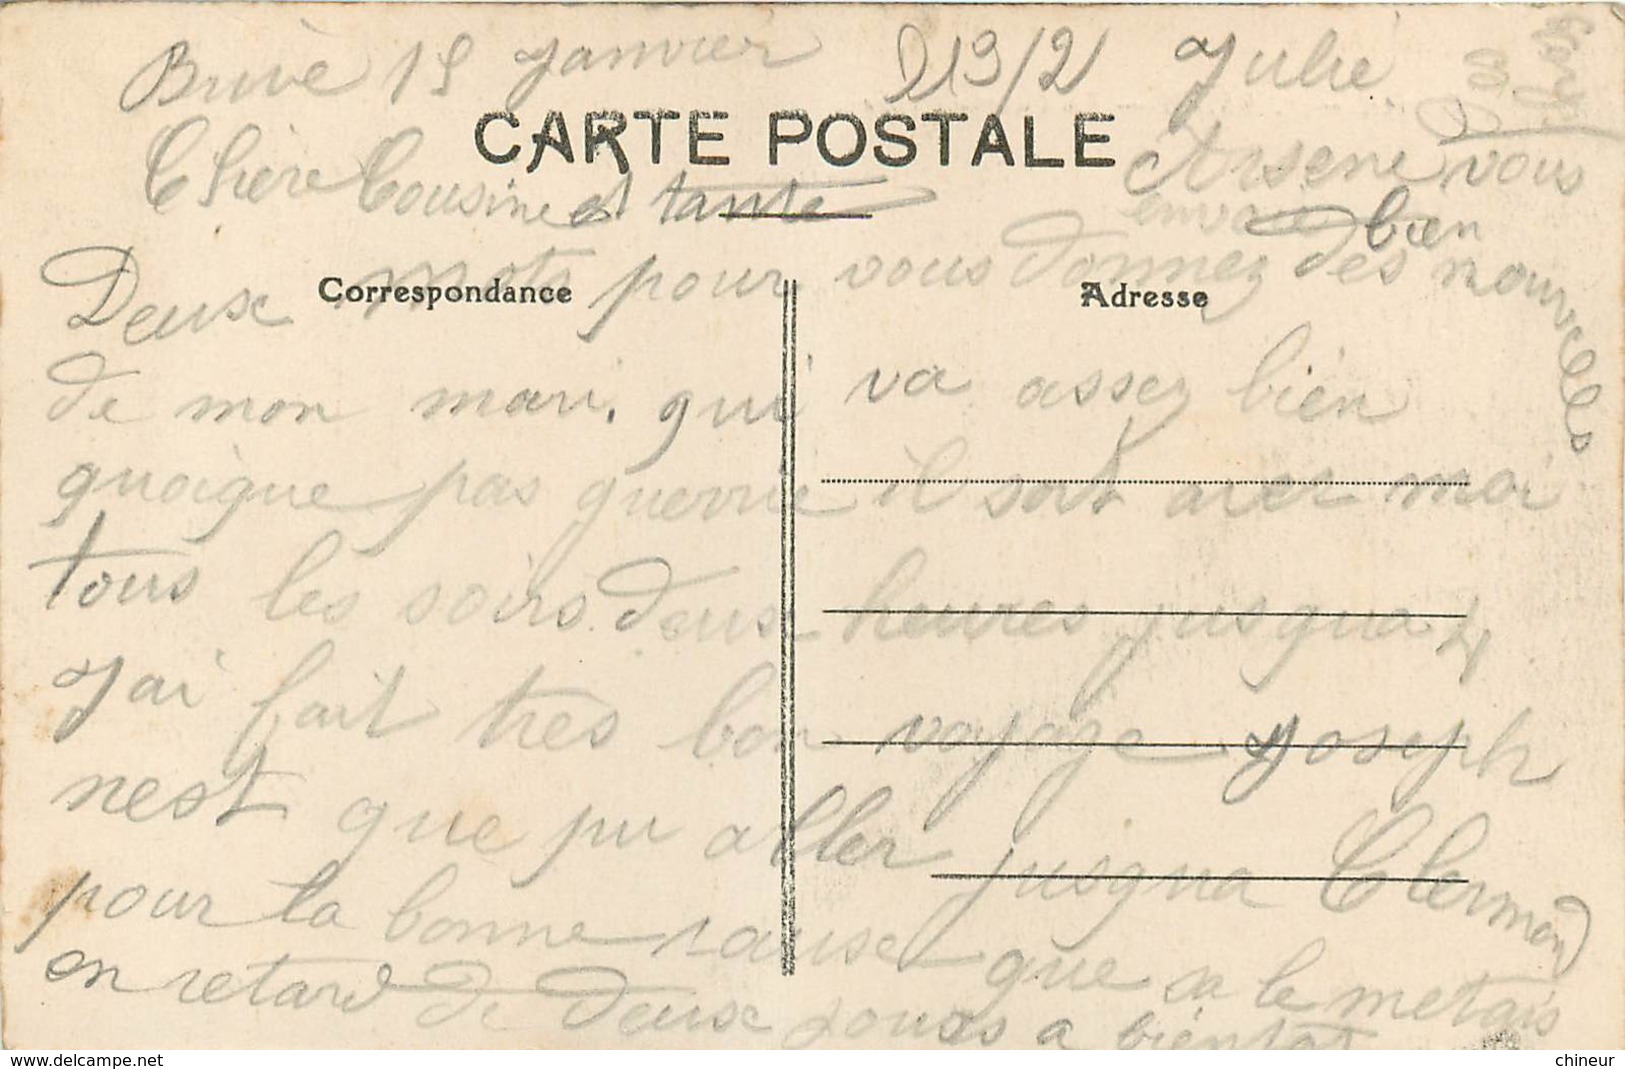 Brive 15 Janvier 213/2 Julie
CARTE POSTALE
Chère Cousine et tante
Arsene vous
envoie bien
Correspondance
Adresse
Deux mots pour vous donnez des nouvelles
de mon mari. qui va assez bien
quoique pas guerrie il sort avec moi
tous les soirs deux heures jusqua 4
J'ai fait très bon voyage Joseph
nest que pu aller jusqua Clermond
pour la bonne cause que sa le metais
en retard de deux jours a bientot
chineur
delcampe.net